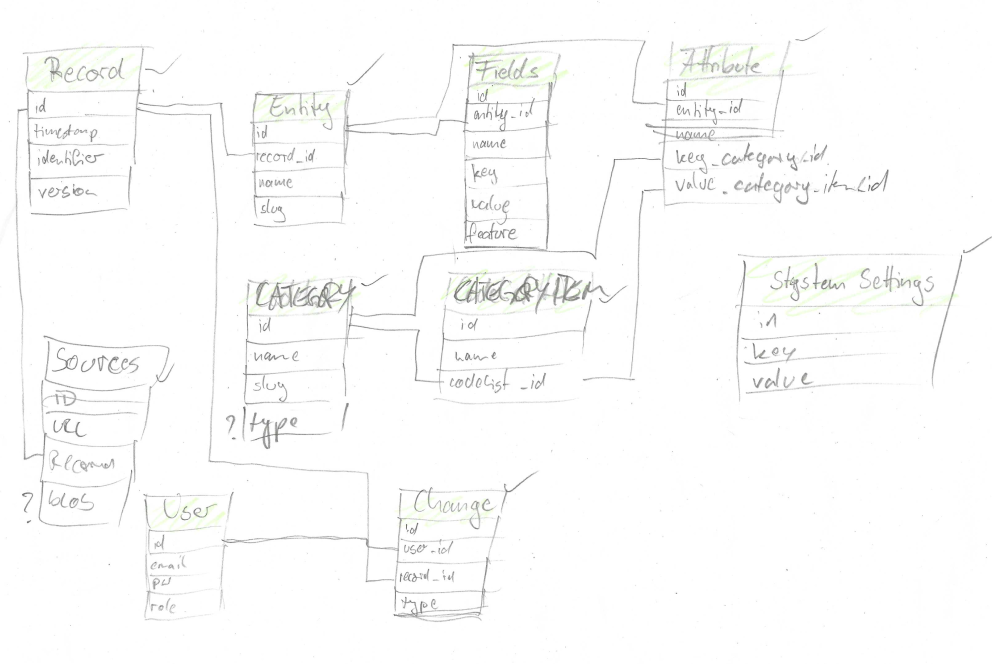 Record
id
timestamp
identifier
version
Entity
id
record_id
name
slug
Fields
id
entity_id
name
key
value
feature
Attribute
id
entity_id
name
key_category_id
value_category_item_id
CATEGORY
id
name
slug
? type
CATEGORY ITEM
id
name
codelist_id
System Settings
id
key
value
Sources
ID
URL
? blob
User
id
email
pw
role
Change
id
user_id
record_id
type